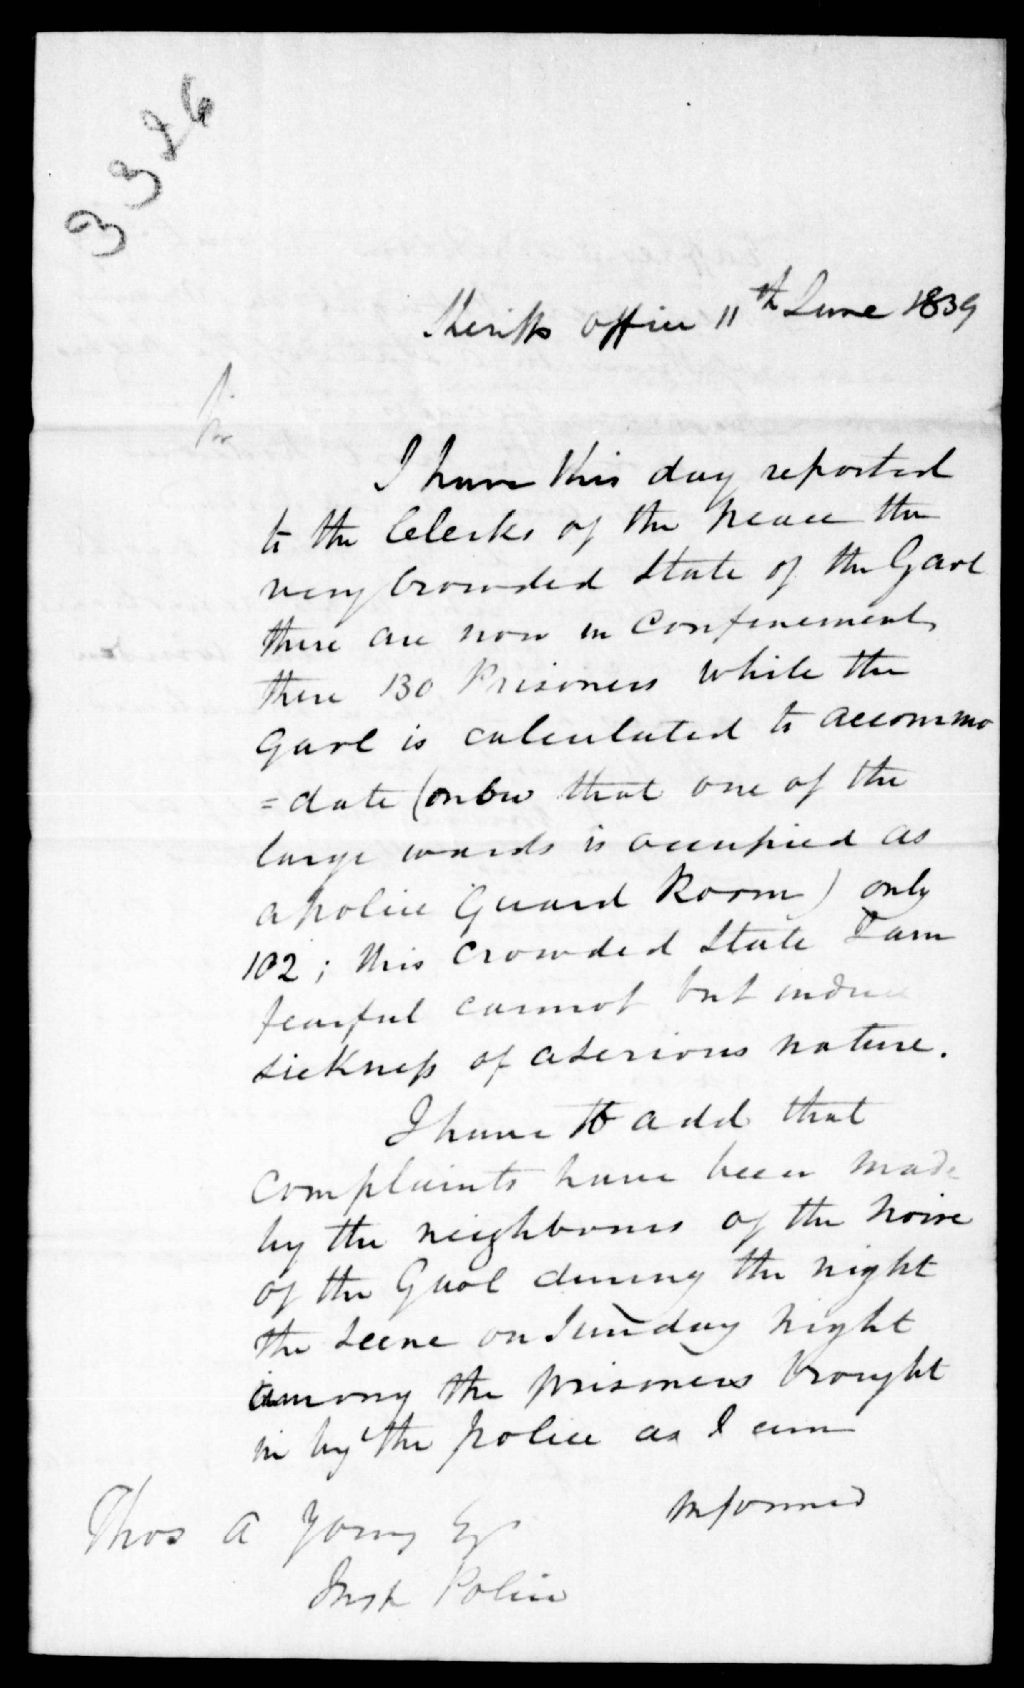 3326
Sheriffs office 11th June 1839
Sir
I have this day reported
to the Clerks of the peace the
very Crowded State of the Gaol
there are now in confinement
there 130 Prisoners while the
Gaol is calculated to accommo
=date (now that one of the
large wards is occupied as
a police Guard Room) only
102; this Crowded State I am
fearful cannot but induce
sickness of a serious nature.
I have to add that
Complaints have been made
by the neighbours of the noise
of the Gaol during the night
the scene on Sunday night
among the prisoners brought
in by the police as I am
informed
Thos A Young Esqr
Inspr Police